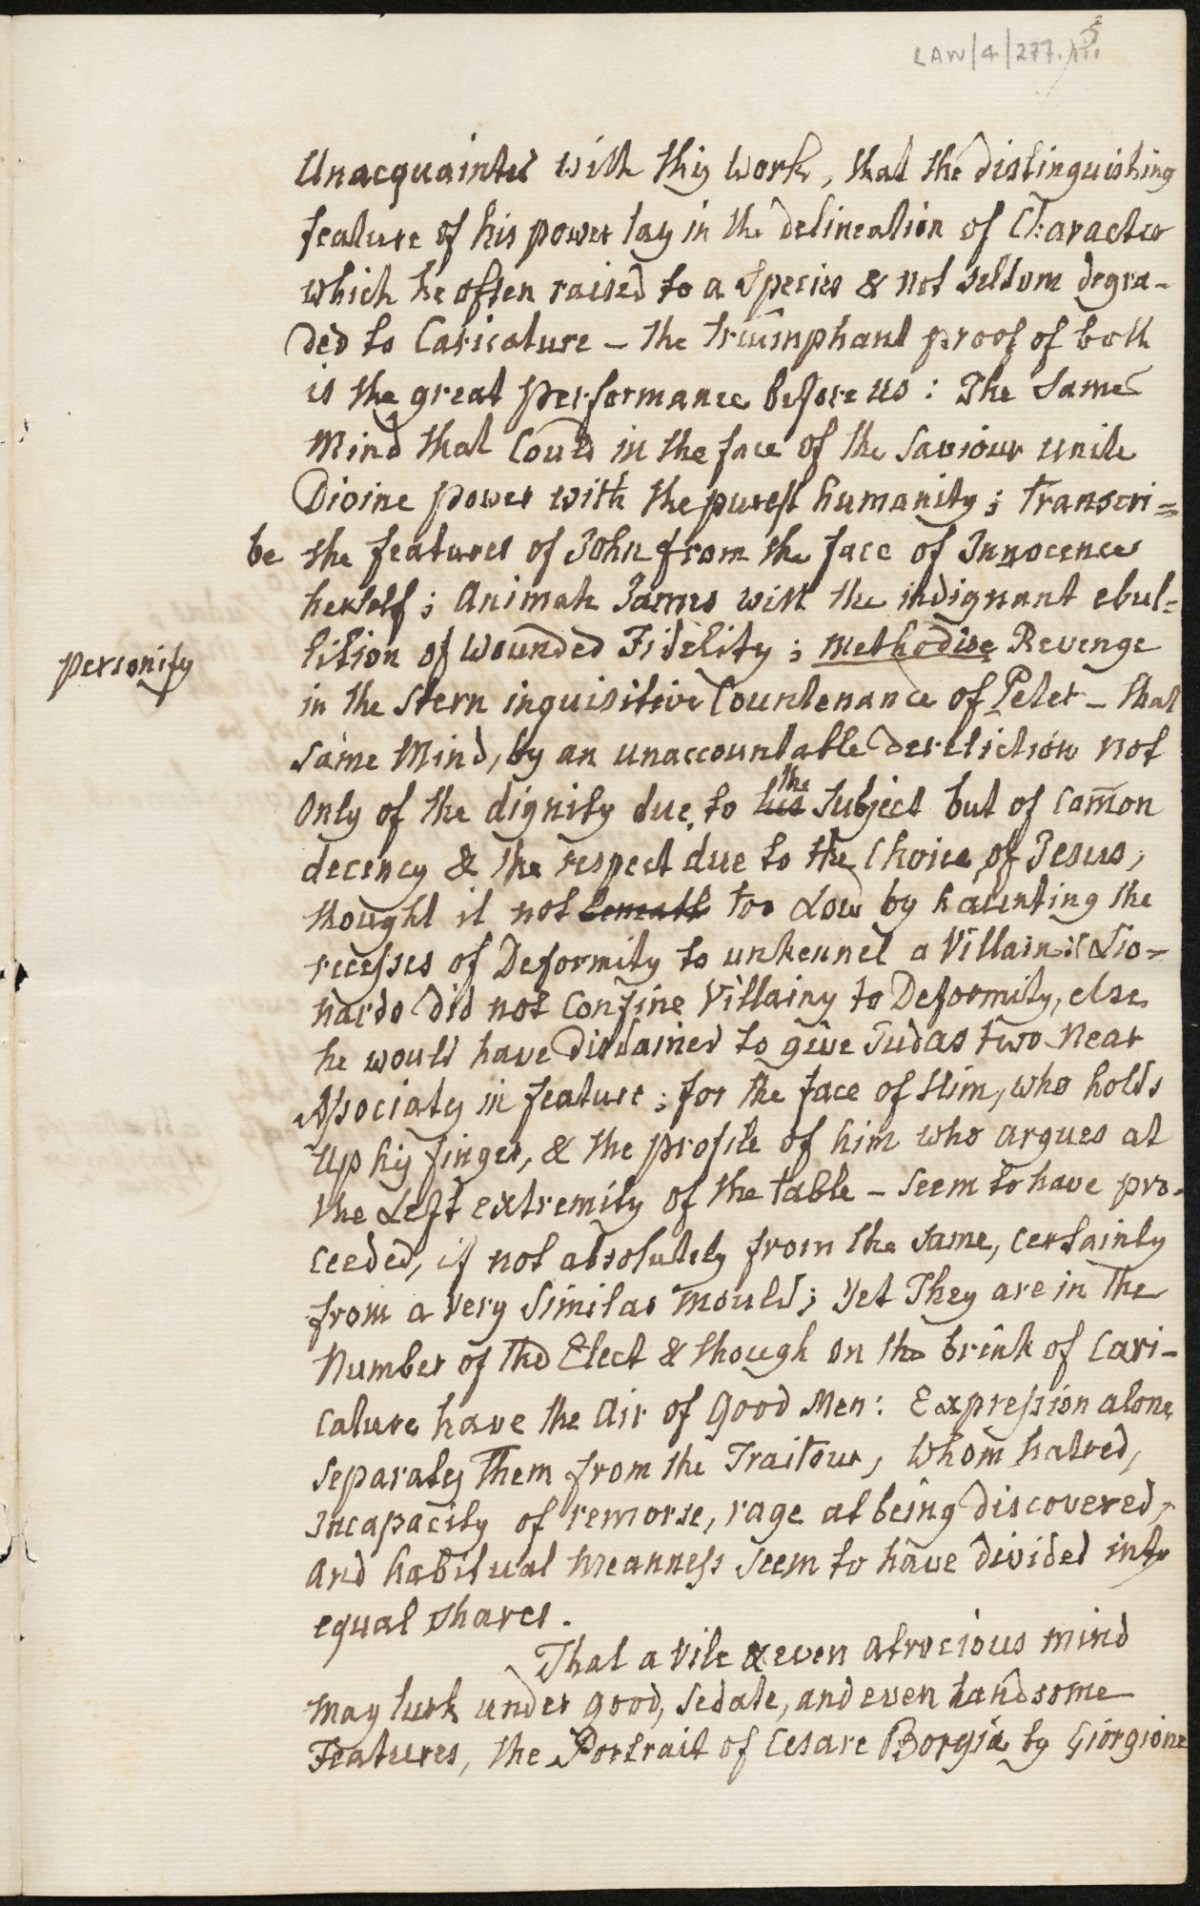 LAW/4/277.
Unacquainted with this Work, that the distinguishing
feature of his power lay in the delineation of Character
which he often raised to a Species & not seldom degra-
ded to Caricature – the triumphant proof of both
is the great performance before us: The Same
Mind that Could in the face of the Saviour unite
Divine power with the purest humanity; transcri=
be the features of John from the face of Innocence
herself; Animate James with the indignant ebul=
personify
lition of wounded Fidelity; methodise Revenge
in the Stern inquisitive Countenance of Peter – that
same Mind, by an unaccountable dereliction not
Only of the dignity due to his the Subject but of Comon
decency & the respect due to the Choice of Jesus,
thought it not beneath too Low by haunting the
recesses of Deformity to unkennel a Villain: Lio-
nardo did not Confine Villainy to Deformity, else
he would have disdained to give Judas two Near
Associates in feature; for the face of Him, who holds
Up his finger, & the profile of him who argues at
the Left extremity of the table – seem to have pro-
ceeded, if not absolutely from the same, certainly
from a very Similar Mould; yet They are in The
Number of The Elect & though on the brink of Cari-
cature have the Air of Good Men: Expression alone
separates Them from the Traitour, Whom hatred,
incapacity of remorse, rage at being discovered,
And habitual meanness seem to have divided into
equal shares.
That a vile & even atrocious mind
may lurk under good, sedate, and even handsome
Features, the Portrait of Cesare Borgia by Giorgione